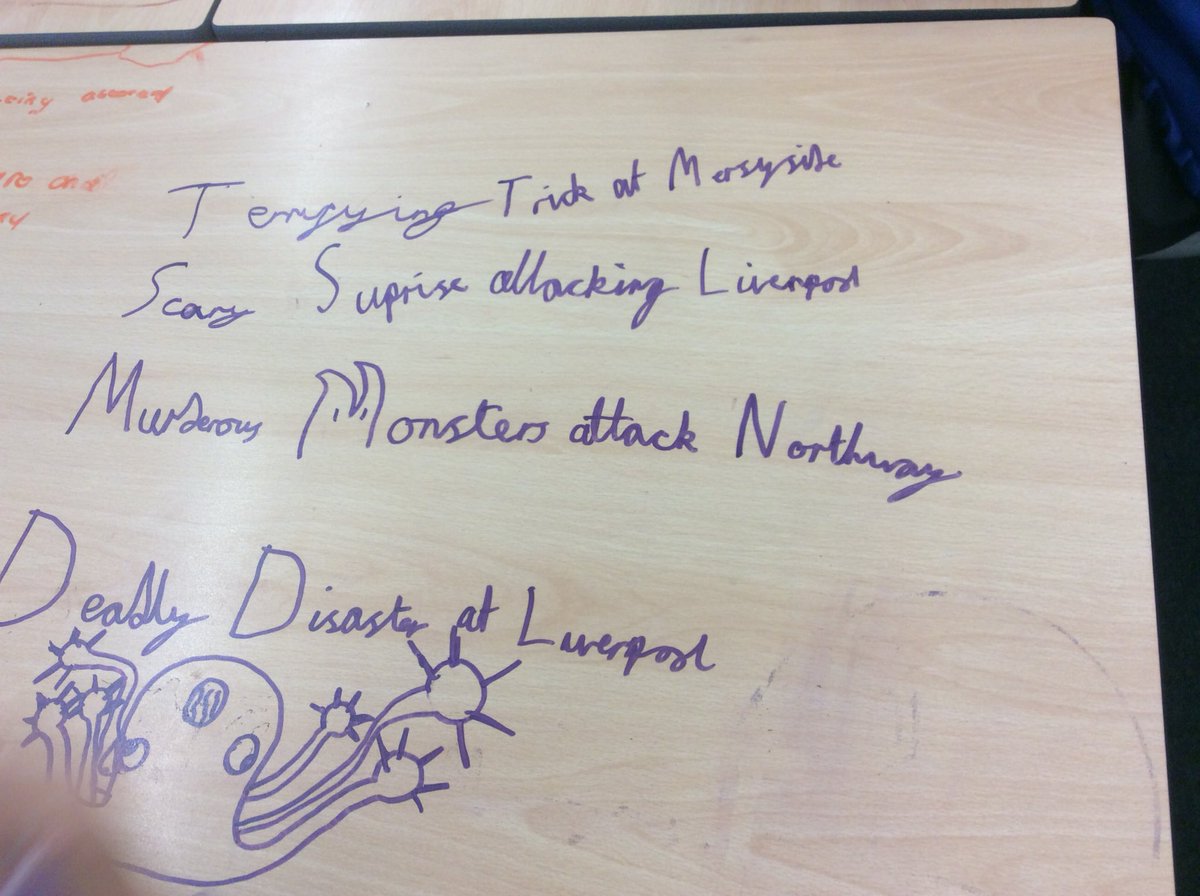 eing
Terrifying Trick at Mersyside
Scary Suprise attacking Liverpool
Murderous Monsters attack Northway
Deadly Disaster at Liverpool